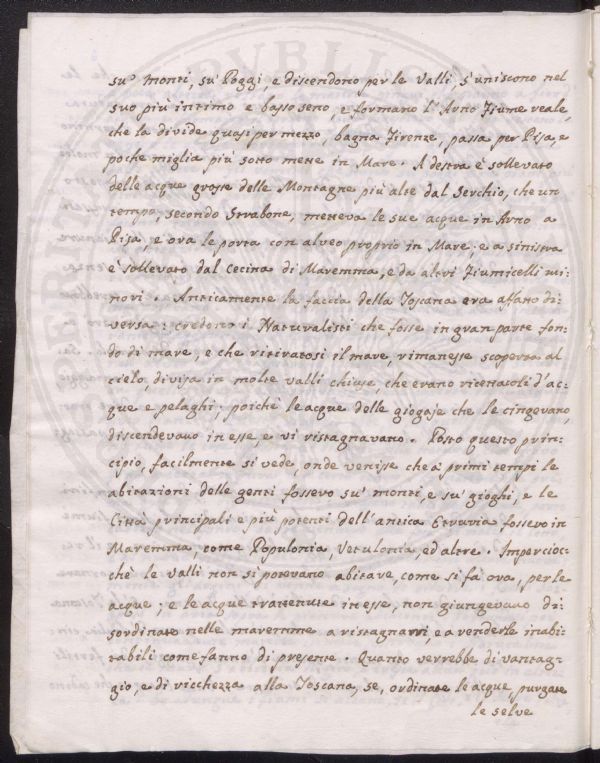 su' monti, su' Poggi, e discendono per le Valli, s'uniscono nel
suo più intimo e basso seno, e formano l'Arno Fiume reale,
che la divide quasi per mezzo, bagna Firenze, passa per Pisa, e
poche miglia più sotto mette in Mare. A destra è sollevato
delle acque grosse delle Montagne più alte dal Serchio, che un
tempo, secondo Strabone, metteva le sue acque in Arno a
Pisa, e ora le porta con alveo proprio in Mare; e a sinistra
è sollevato dal Cecina di Maremma, e da altri Fiumicelli mi:
nori. Anticamente la faccia della Toscana era affatto di:
versa: credono i Naturalisti che fosse in gran parte fon:
do di mare, e che ritiratosi il mare, rimanesse scoperta al
cielo, divisa in molte valli chiuse che erano ricettacoli d'ac:
que e pelaghi; poichè le acque delle giogaje che le cingevano,
discendevano in esse e vi ristagnavano. Posto questo prin:
cipio, facilmente si vede, onde venisse che a' primi tempi le
abitazioni delle genti fossero su' monti, e su' gioghi, e le
Città principali e più potenti dell'antica Etruria fossero in
Maremma come Populonia, Vetulonia, ed altre. Impercioc:
chè le valli non si potevano abitare, come si fà ora, per le
acque; e le acque trattenute in esse, non giungevano di:
sordinate nelle maremme a ristagnarvi, e a renderle inabi:
tabili come fanno di presente. Quanto verrebbe di vantag:
gio, e di ricchezza alla Toscana, se, ordinate le acque, purgate
le selve